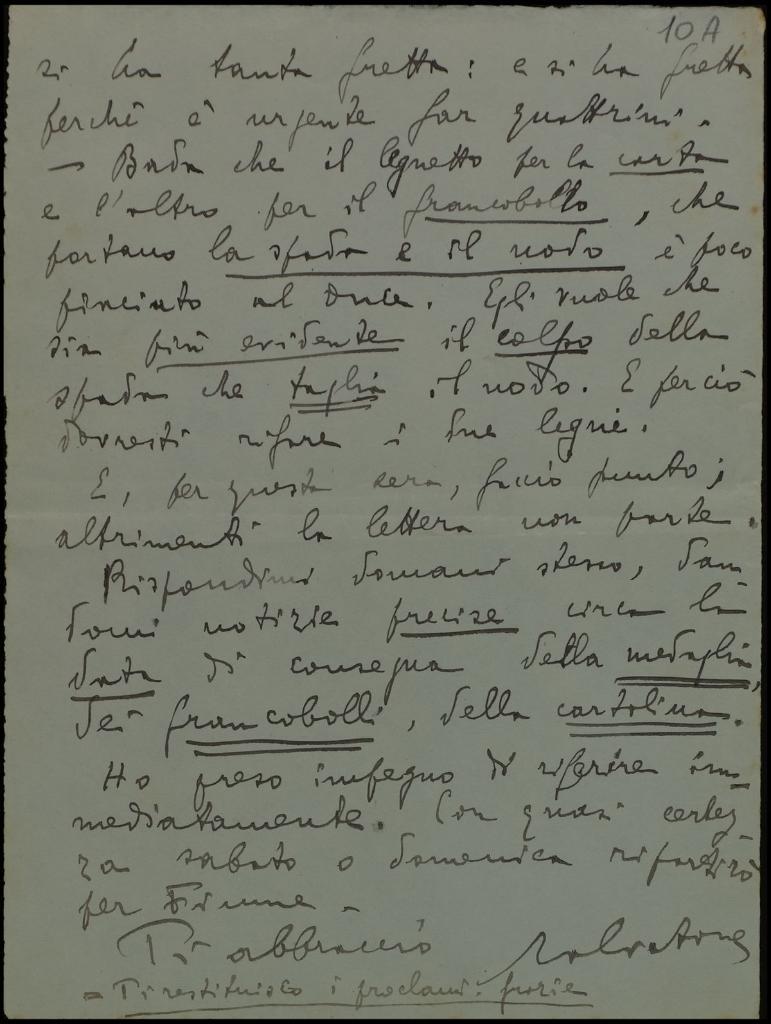 10A
si ha tanta fretta: e si ha fretta
perchè è urgente far quattrini.
— Bada che il legnetto per la carta
e l'altro per il francobollo, che
portano la spada e il nodo è poco
piaciuto al Duce. Egli vuole che
sia più evidente il colpo della
spada che taglia il nodo. E perciò
dovresti rifare i due legni.
E, per questa sera, faccio punto;
altrimenti la lettera non parte.
Rispondimi domani stesso, dan
domi notizie precise circa la
data di consegna della medaglia,
dei francobolli, della cartolina.
Ho preso impegno di riferire im-
mediatamente. Con quasi certez
za sabato o domenica ripartirò
per Fiume.
Ti abbraccio Salvatore
= Ti restituisco i proclami: grazie